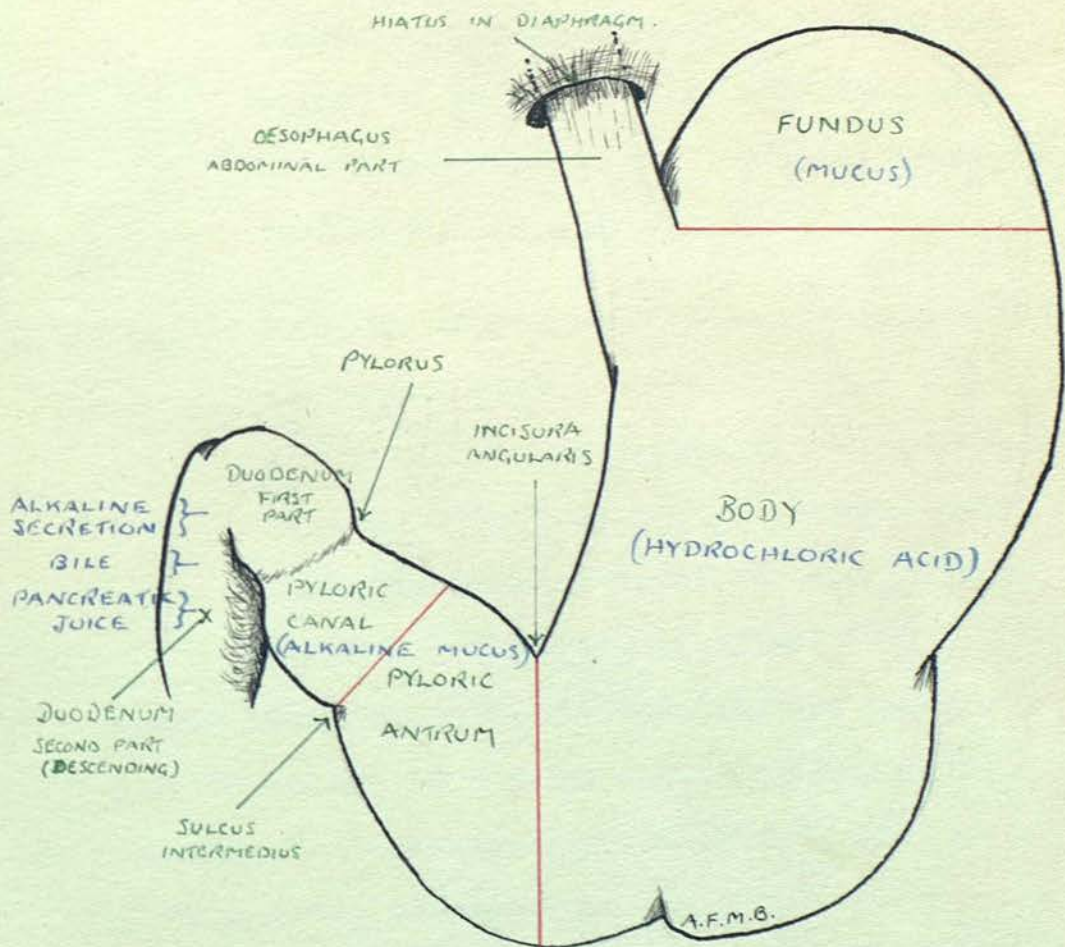 HIATUS IN DIAPHRAGM.
OESOPHAGUS
ABDOMINAL PART
FUNDUS
(MUCUS)
PYLORUS
INCISURA
ANGULARIS
DUODENUM
FIRST
PART
ALKALINE
SECRETION
BILE
PANCREATIC
JUICE
BODY
(HYDROCHLORIC ACID)
PYLORIC
CANAL
(ALKALINE MUCUS)
PYLORIC
ANTRUM
DUODENUM
SECOND PART
(DESCENDING)
SULCUS
INTERMEDIUS
A.F.M.B.